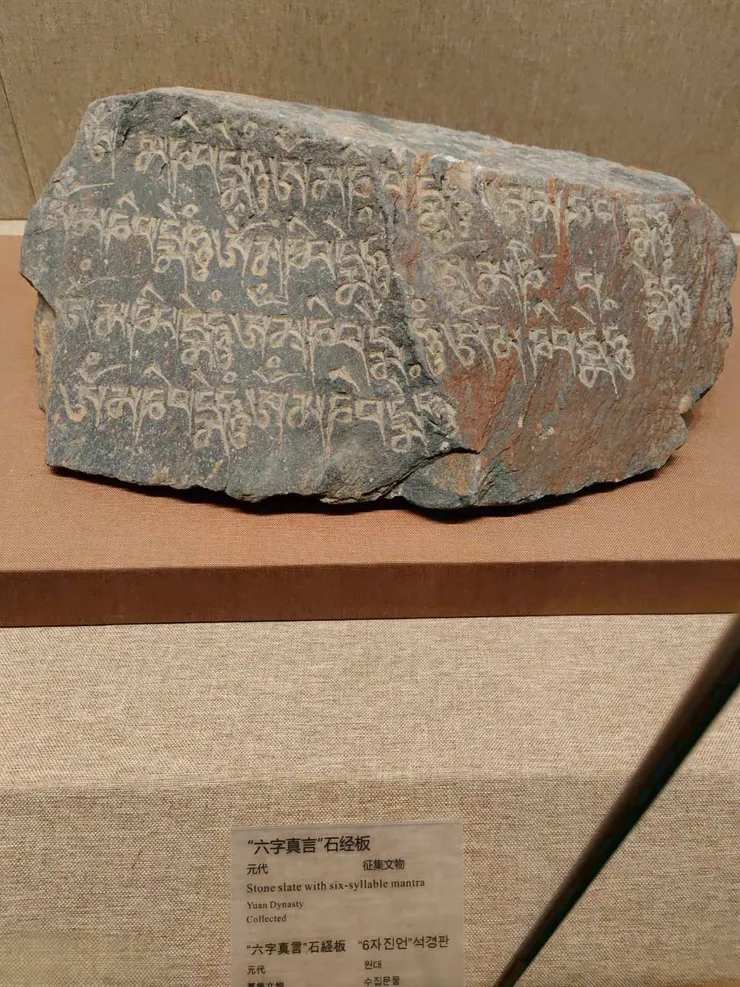 ཨོཾ་མ་ཎི་པདྨེ་ཧཱུྃ་ཨོཾ་མ་ཎི་པདྨེ་ཧཱུྃ་ཨོཾ་མ་ཎི་པདྨེ་ཧཱུྃ
ཨོཾ་མ་ཎི་པདྨེ་ཧཱུྃ་ཨོཾ་མ་ཎི་པདྨེ་ཧཱུྃ་ཨོཾ་མ་ཎི་པདྨེ་ཧཱུྃ
ཨོཾ་མ་ཎི་པདྨེ་ཧཱུྃ་ཨོཾ་མ་ཎི་པདྨེ་ཧཱུྃ་ཨོཾ་མ་ཎི་པདྨེ་ཧཱུྃ
ཨོཾ་མ་ཎི་པདྨེ་ཧཱུྃ་ཨོཾ་མ་ཎི་པདྨེ་ཧཱུྃ
“六字真言”石经板
元代 征集文物
Stone slate with six-syllable mantra
Yuan Dynasty
Collected
“六字真言”石経板 “6자진언”석경판
元代 원대
수집문물